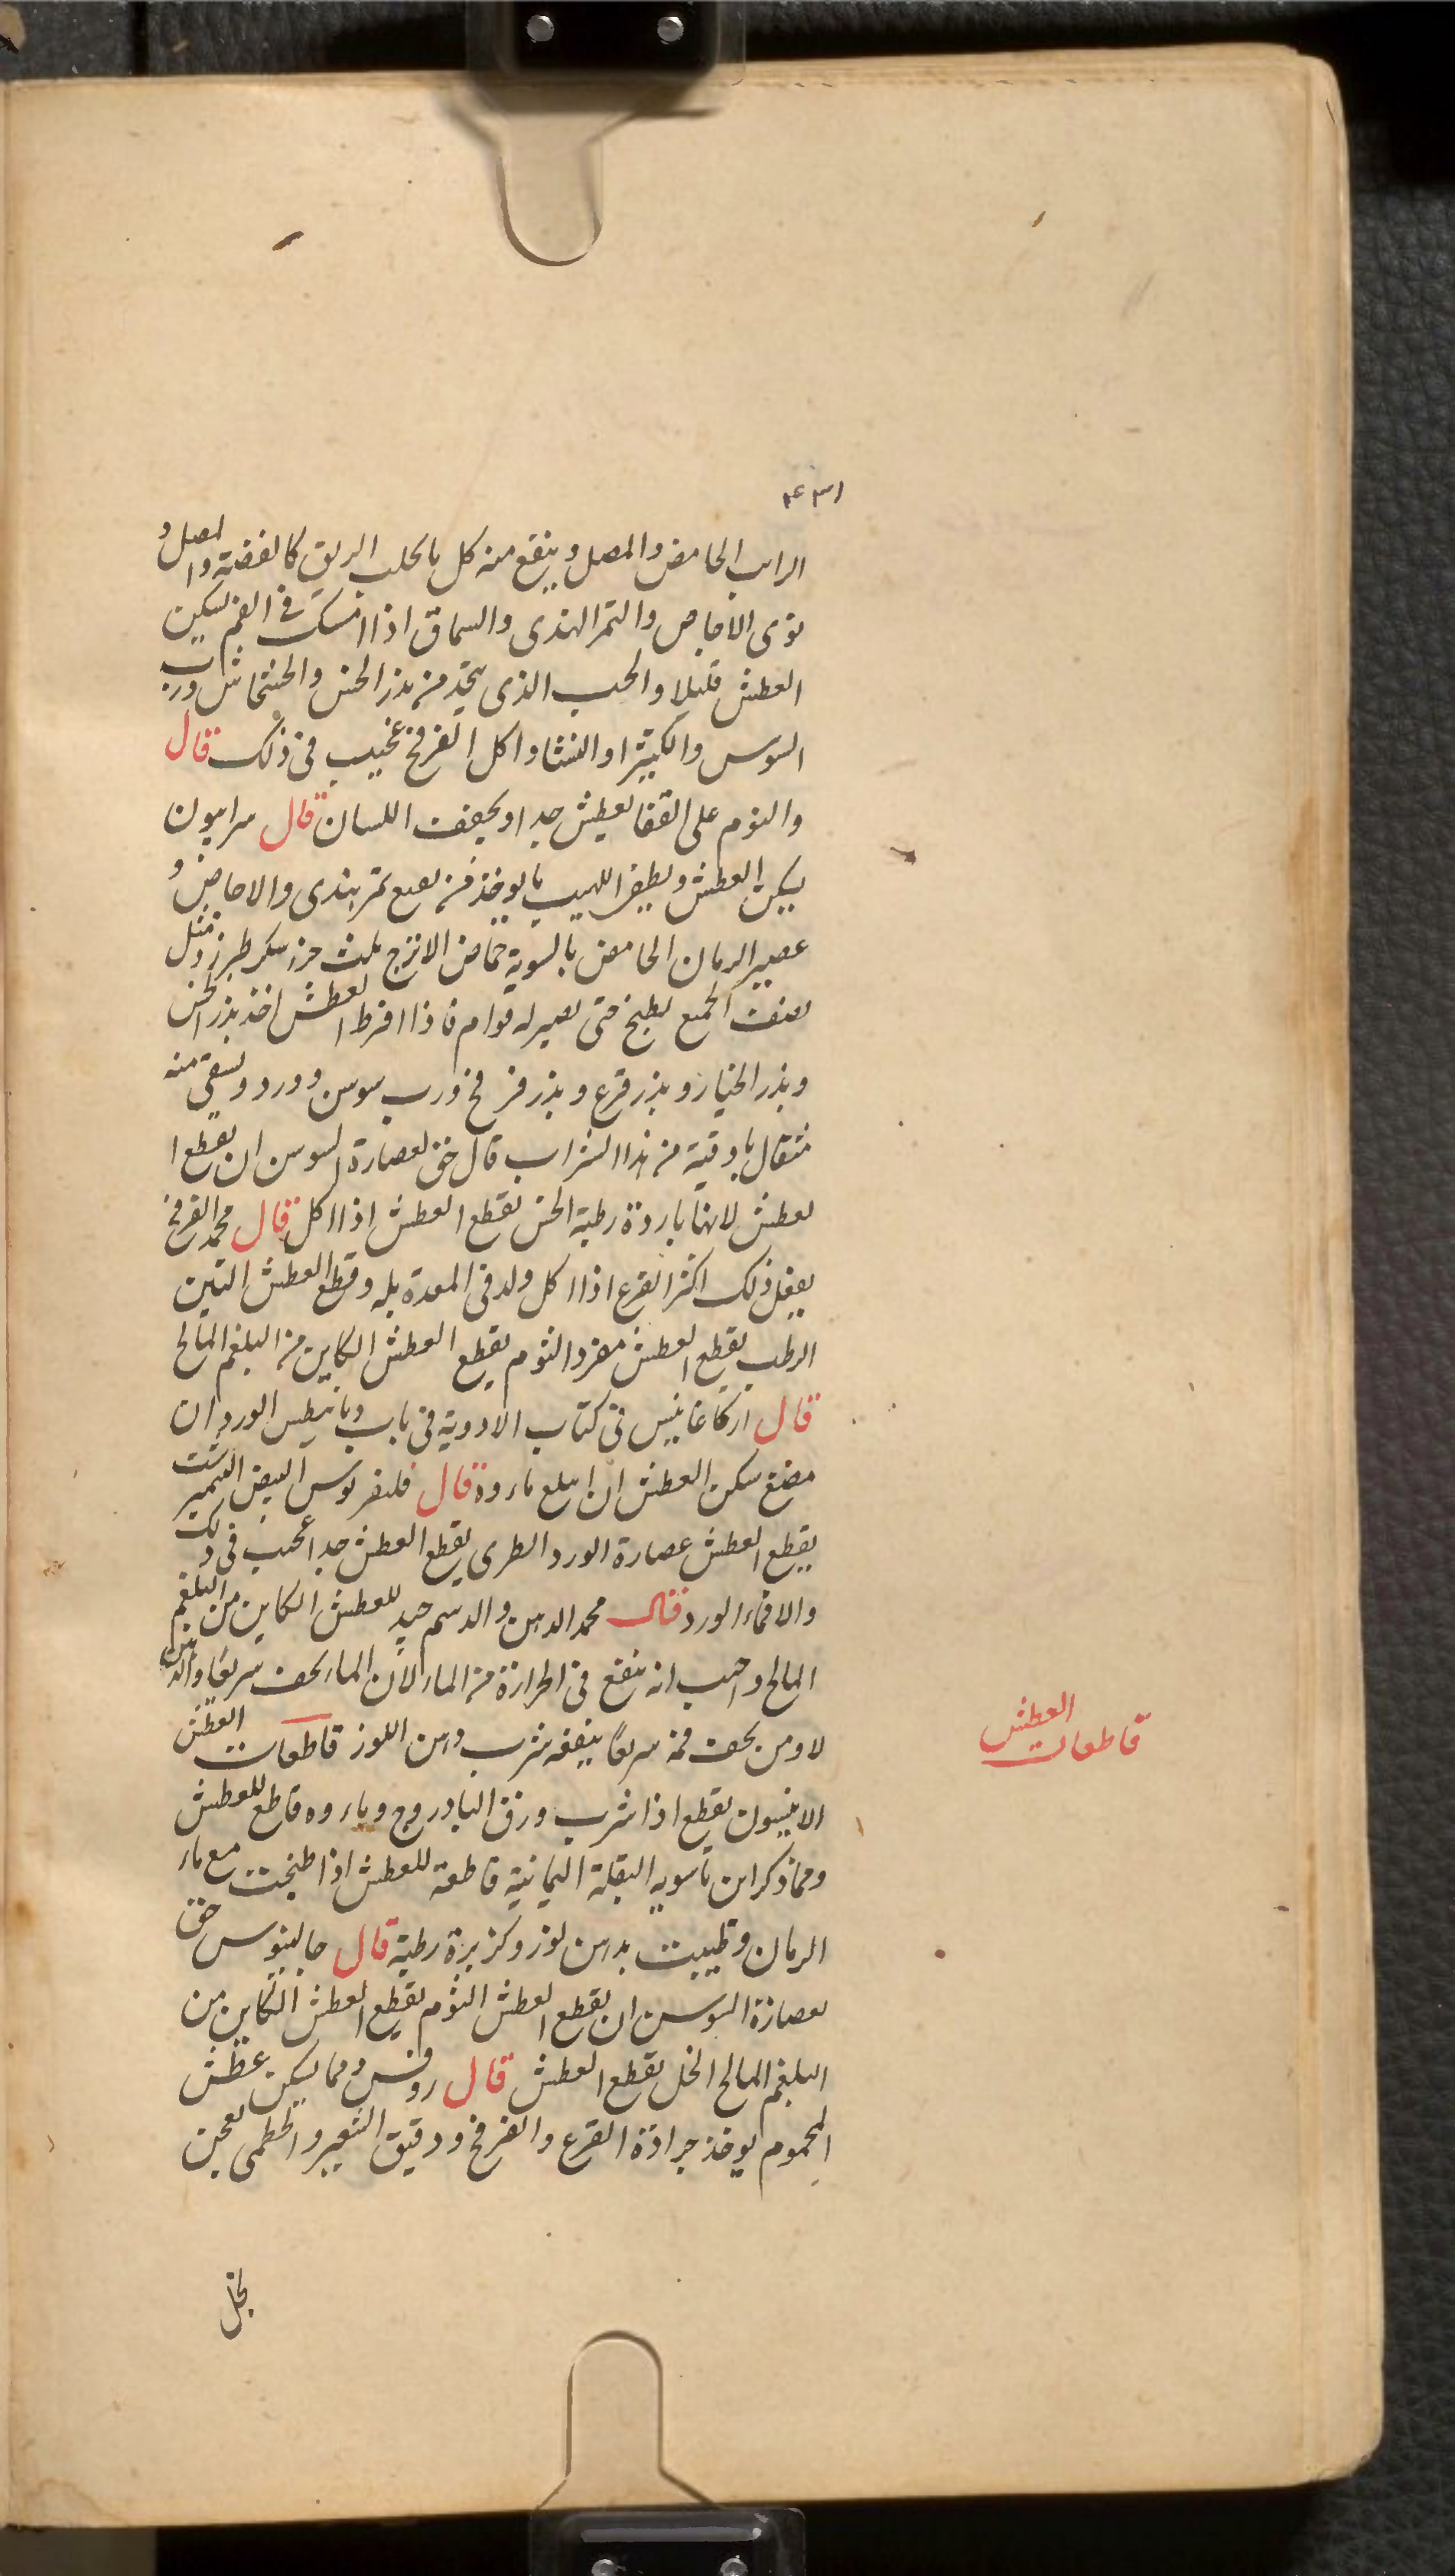 ٤٣١
الرايب الحامض والمصل وينفع منه كل ما يحلب الريق كالفضة والمصل و
نوى الاجاص والتمر الهندى والسماق اذا امسك فى الفم يسكن
العطش قليلا والحب الذى يتخذ من بذر الخس والخشخاش ورب
السوس والكثيرا والنشا واكل الفرفخ عجيب فى ذلك قال
والنوم على القفا يعطش جدا ويجفف اللسان قال سرابيون
يسكن العطش ويطفى اللهيب ما يوخذ من نقيع تمر هندى والاجاص و
عصير الرمان الحامض بالسوية حماض الاترج ثلث جزء سكر طبرزد مثل
نصف الجميع يطبخ حتى يصير له قوام فاذا افرط العطش اخذ بذر الخس
وبذر الخيار وبذر قرع وبذر فرفخ ورب سوس وورد ويسقى منه
مثقال باوقية من هذا الشراب قال حق لعصارة السوس ان يقطع ا
لعطش لانها باردة رطبة الخس يقطع العطش اذا اكل قال محمد الفرفخ
يفعل ذلك اكثر القرع اذا اكل ولد فى المعدة بله وقطع العطش التين
الرطب يقطع العطش مفرد الثوم يقطع العطش الكاين من البلغم المالح
قال اركاغانيس فى كتاب الادوية فى باب ديانيطس الورد ان
مضغ سكن العطش ان ابلع ماءه قال فليغريوس البيض النيمبرشت
يقطع العطش عصارة الورد الطرى يقطع العطش جدا عجيب فى ذلك
والاقماء الورد قال محمد الدهن والدسم جيد للعطش الكاين من البلغم
المالح واحسب انه ينفع فى الحرارة من الماء لان الماء يجف سريعا والدهن
لا ومن يجف فمه سريعا ينفعه شرب دهن اللوز قاطعات العطش
الانيسون يقطع اذا شرب ورق البادروج وماءه قاطع للعطش
ومما ذكر ابن ماسويه البقلة اليمانية قاطعة للعطش اذا طبخت مع ماء
الرمان وطيبت بدهن لوز وكزبرة رطبة قال جالينوس حق
لعصارة السوس ان يقطع العطش الثوم يقطع العطش الكاين من
البلغم المالح الخل يقطع العطش قال روفس ومما يسكن عطش
المحموم يوخذ جرادة القرع والفرفخ ودقيق الشعير والخطمى يعجن
بخل
قاطعات العطش